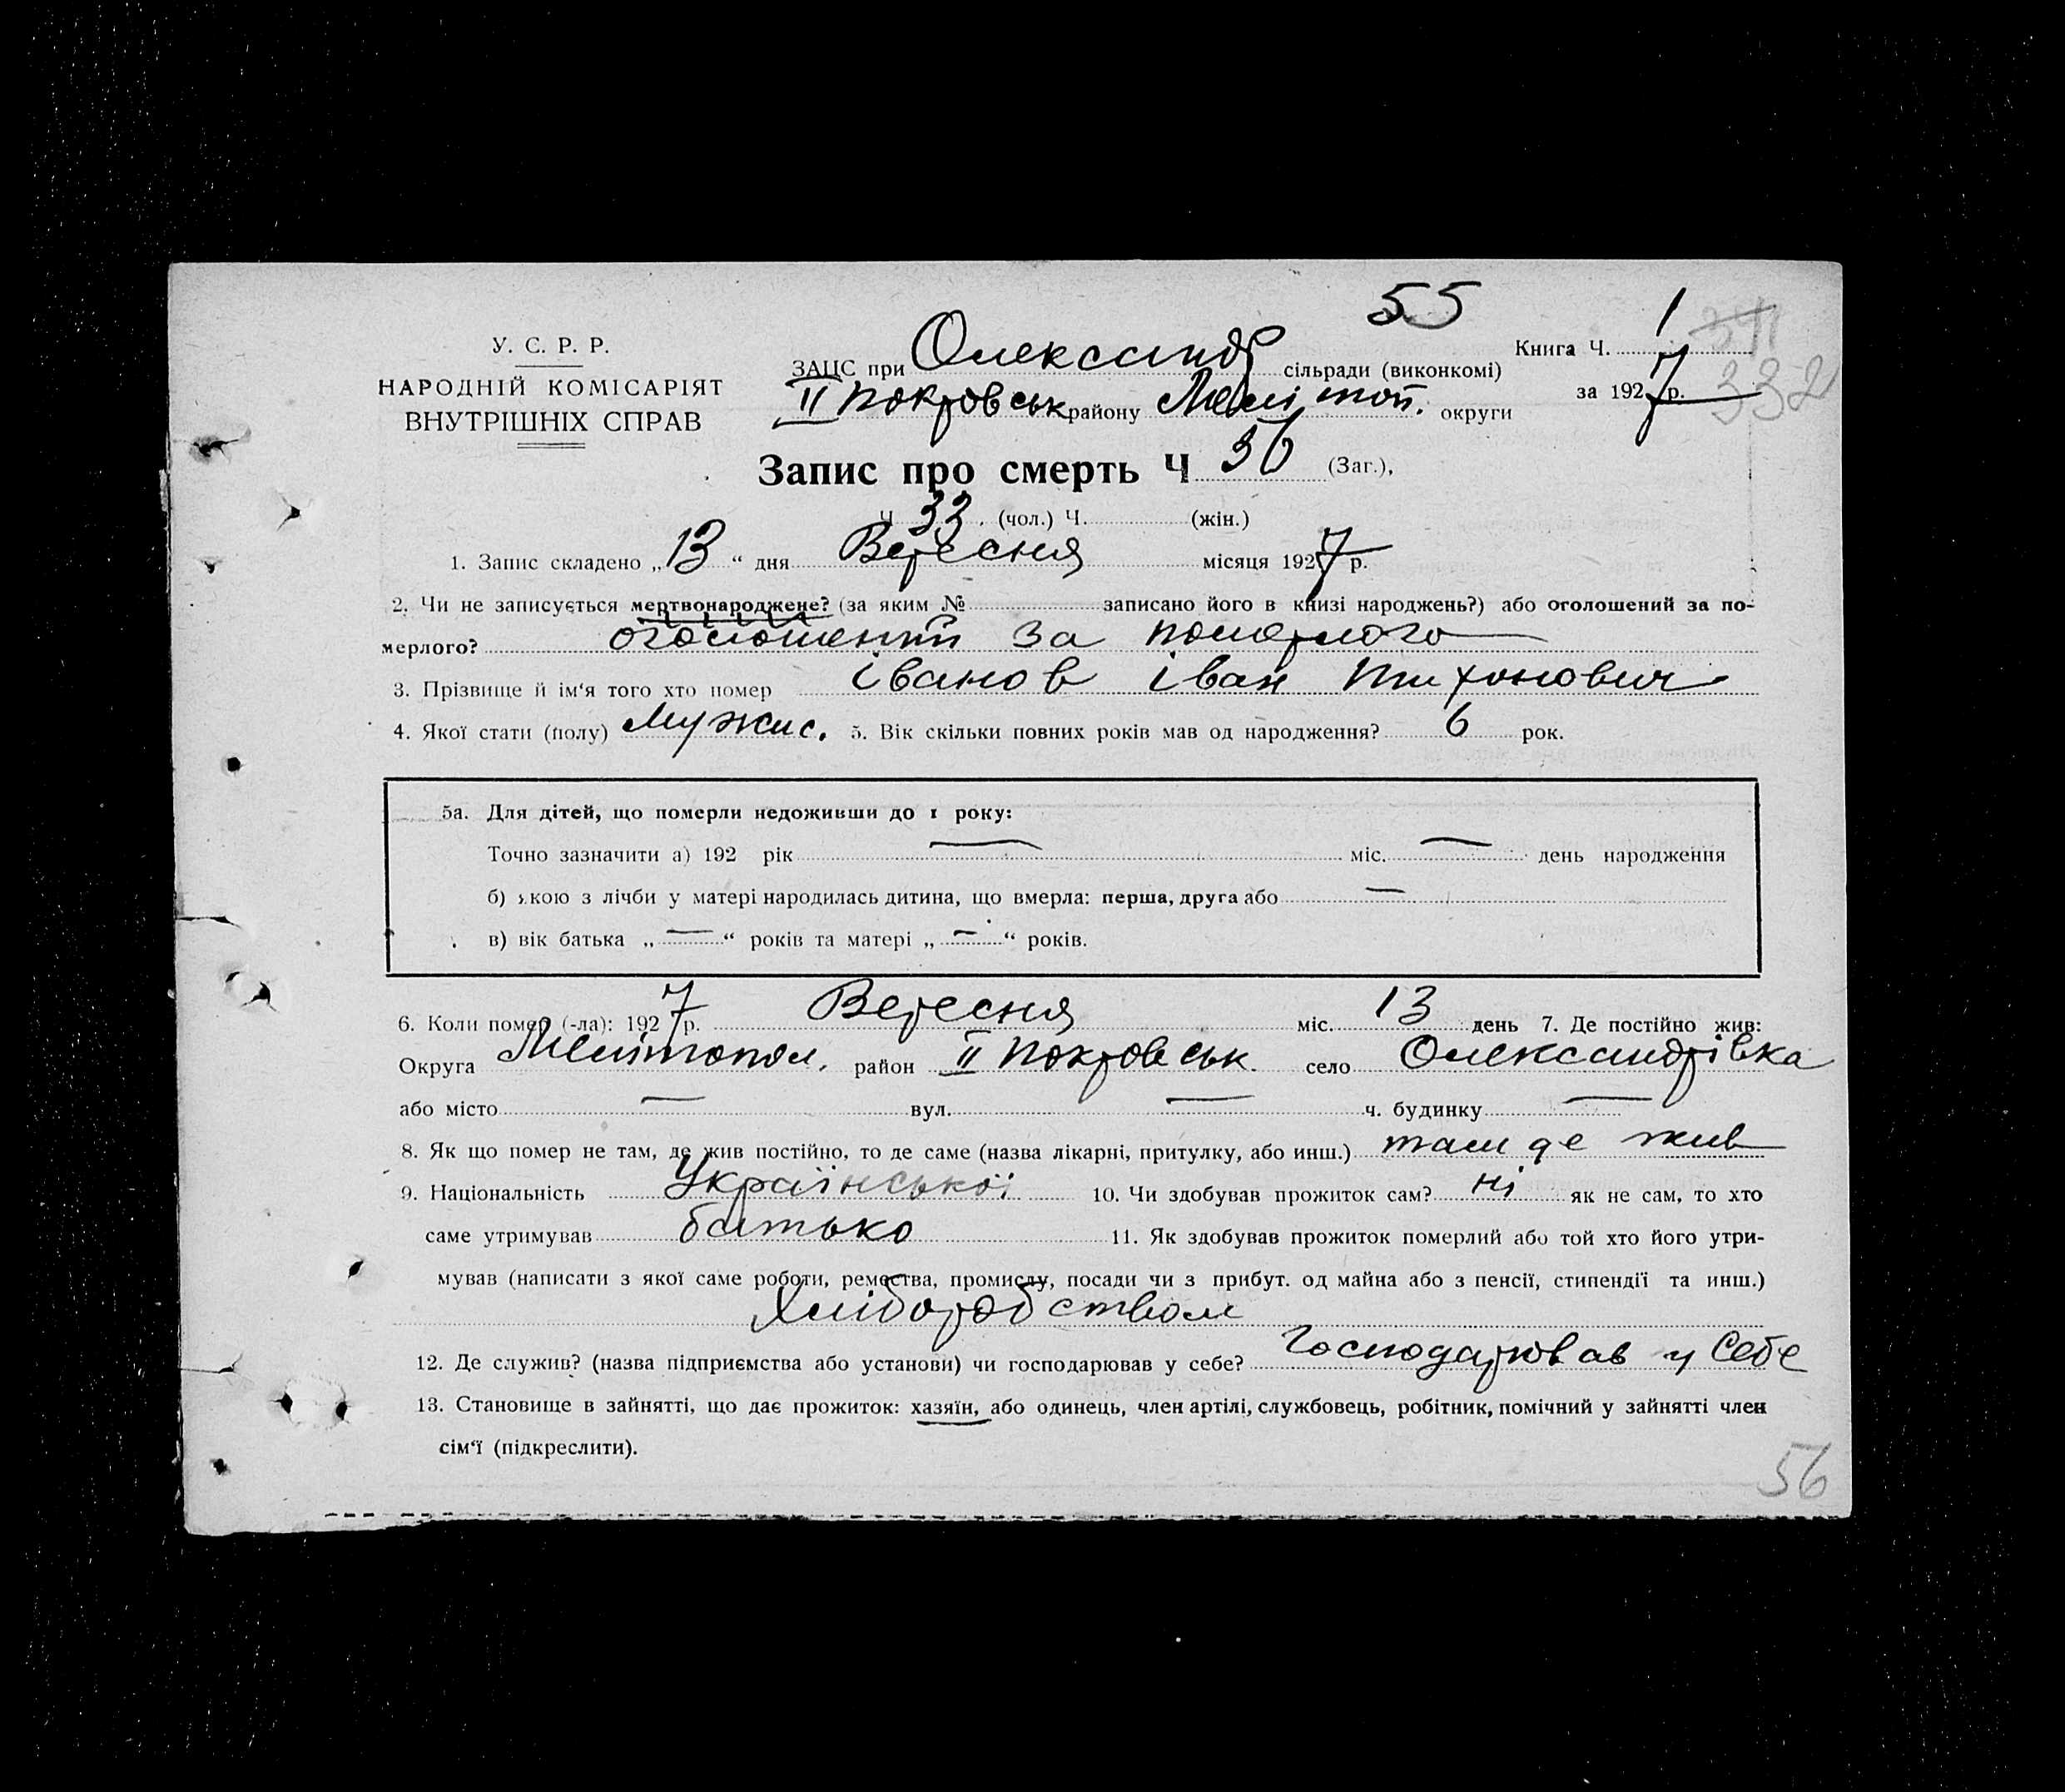 55
У. С. Р. Р.
НАРОДНІЙ КОМІСАРІЯТ
ВНУТРІШНІХ СПРАВ
ЗАЦС при Олександр сільради (виконкомі)
II Покровськ району Меліт оп. округи
Книга Ч. 1
за 1927 р.
332
Запис про смерть Ч 56 (Заг.),
Ч 33 (чол.) Ч. (жін.)
1. Запис складено „13“ дня Вересня місяця 1927 р.
2. Чи не записується мертвонароджене? (за яким № записано його в книзі народжень?) або оголошений за по-
мерлого? оголошений за померлого
3. Прізвище й ім‘я того хто помер Іванов Іван Тихонович
4. Якої стати (полу) Мужис. 5. Вік скільки повних років мав од народження? 6 рок.
5а. Для дітей, що померли недоживши до 1 року:
Точно зазначити а) 192 рік — міс. — день народження
б) якою з лічби у матері народилась дитина, що вмерла: перша, друга або —
в) вік батька „—“ років та матері „—“ років.
6. Коли помер (-ла): 1927 р. Вересня міс. 13 день 7. Де постійно жив:
Округа Мелітопол. район II Покровськ. село Олександрівка
або місто — вул. — ч. будинку —
8. Як що помер не там, де жив постійно, то де саме (назва лікарні, притулку, або инш.) там де жив
9. Національність Української 10. Чи здобував прожиток сам? ні як не сам, то хто
саме утримував батько 11. Як здобував прожиток померлий або той хто його утри-
мував (написати з якої саме роботи, ремества, промислу, посади чи з прибут. од майна або з пенсії, стипендії та инш.)
Хліборобством
12. Де служив? (назва підприємства або установи) чи господарював у себе? Господарював у себе
13. Становище в зайнятті, що дає прожиток: хазяїн, або одинець, член артілі, службовець, робітник, помічний у зайнятті член
сім‘ї (підкреслити).
56